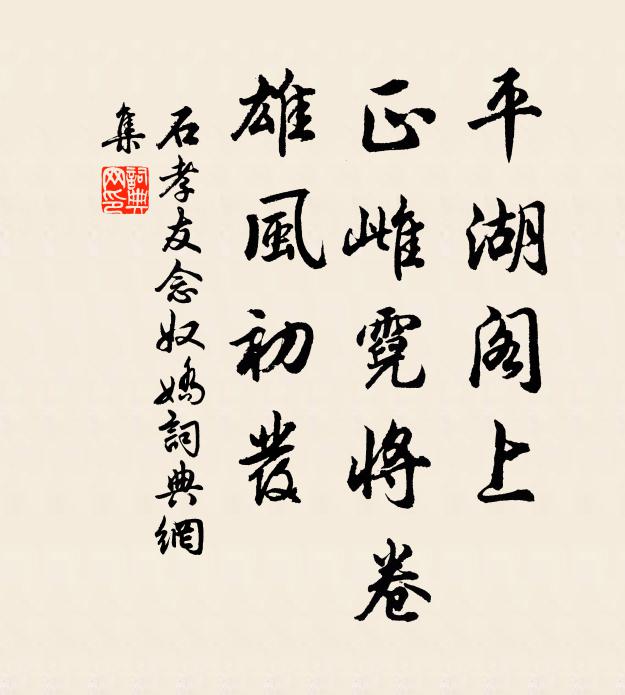 平湖阁上
正雌霓将卷
雄風初发
石孝友念奴嬌詞典網
集
詞典网印